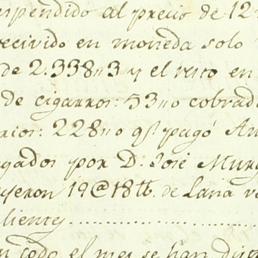 pendido al precio de 12
recivido en moneda solo
de 2:338n3 y el resto en
de cigarros: 53no cobrad
rior: 228no qe. pagó An
gados por D: José Mur
yeron 19@18tt. de Lana v
lientes
n todo el mes se han dist